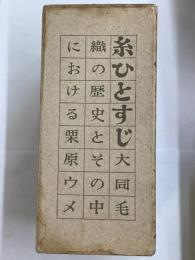 糸ひとすじ 大同毛
織の歴史とその中
における栗原ウメ